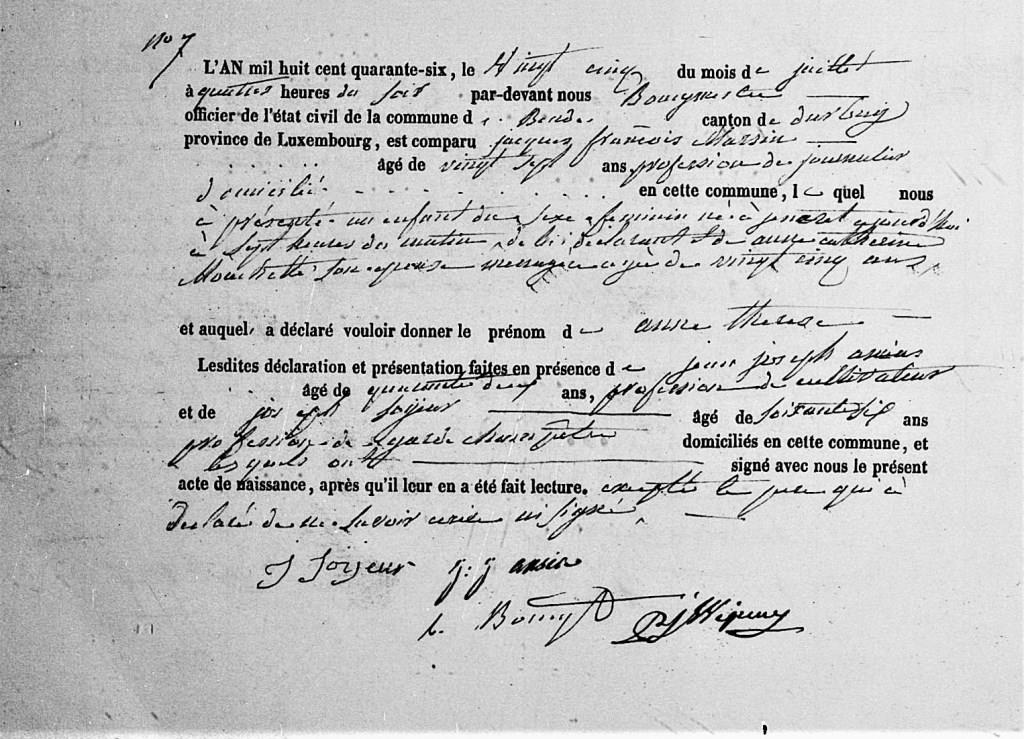 No 7
L'AN mil huit cent quarante-six, le vingt cinq du mois de juillet
à quatres heures du soir par-devant nous Bourgmestre
officier de l'état civil de la commune de Bende canton de durbuy
province de Luxembourg, est comparu jacques françois Massin
âgé de vingt sept ans profession de journalier
domicilié en cette commune, le quel nous
à présenté un enfant du sexe feminin né à jeneret aujourd'hui
à sept heures du matin de lui déclarant & de anne catherine
son epouse menagère agée de vingt cinq ans
et auquel a déclaré vouloir donner le prénom de anne therese
Lesdites déclaration et présentation faites en présence de jean joseph
âgé de quarante deux ans, profession de cultivateur
et de joseph soyeur âgé de soixante six ans
profession de garde champêtre domiciliés en cette commune, et
lesquels ont signé avec nous le présent
acte de naissance, après qu'il leur en a été fait lecture. excepté le pere qui à
declaré de ne savoir ecrire ni signé
J Soyeur j: j ansia
L. Bourg